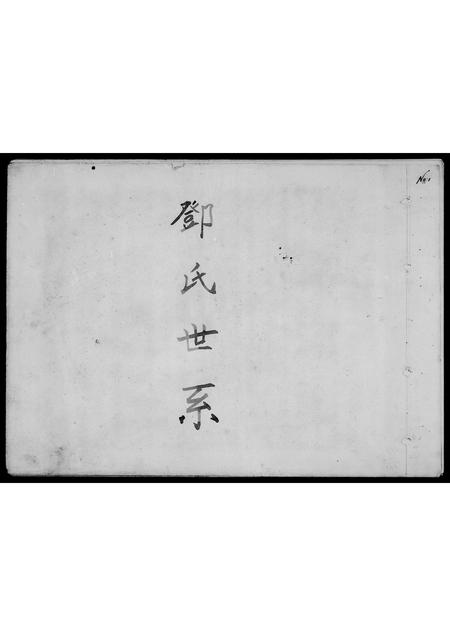 鄧氏世系
No 1